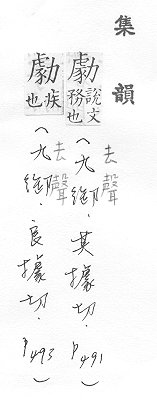 集韻
勮說文務也(去聲九御.其據切.P491)
勮疾也(去聲九御.良據切.P493)